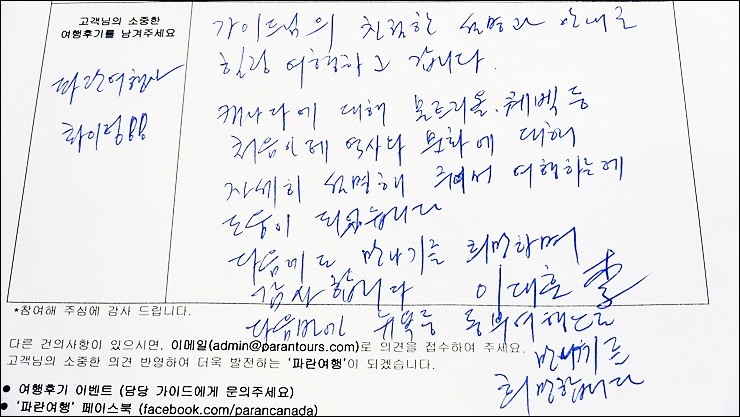 고객님의 소중한
여행후기를 남겨주세요
파란여행사
화이팅!!
가이드님의 친절한 설명과 안내로
힐링 여행하고 갑니다.
캐나다에 대해 몬트리올. 퀘벡 등
처음인데 역사나 문화에 대해
자세히 설명해 주셔서 여행하는데
도움이 되었습니다
다음에도 만나기를 희망하며
감사합니다 이대훈 李
다음번에 뉴욕등 동부여행으로
만나기를
희망합니다
*참여해 주심에 감사 드립니다.
다른 건의사항이 있으시면, 이메일(admin@parantours.com)로 의견을 접수하여 주세요.
고객님의 소중한 의견 반영하여 더욱 발전하는 '파란여행'이 되겠습니다.
● 여행후기 이벤트 (담당 가이드에게 문의주세요)
● '파란여행' 페이스북 (facebook.com/parancanada)